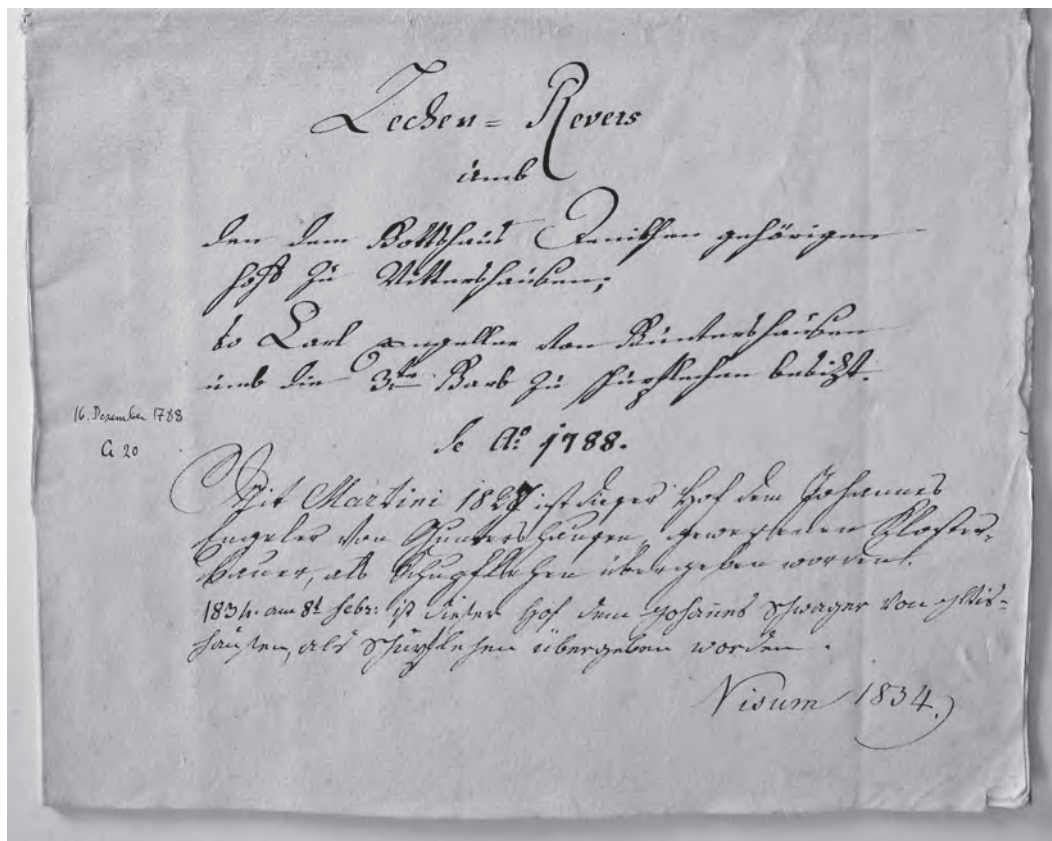 Lechen = Revers
umb
den dem Gottshaus Denikhen gehörigen
Hoff zu Wittershausen;
so Carl Engeller von Guntershausen
umb die 3.te Garb zu Schupflechen besitzt.
16. Dezember 1788
G 20
de Aº 1788.
Mit Martini 1827 ist dieser Hof dem Johannes
Engeler von Guntershausen, gewesenen Kloster-
bauer, als Schupflehen übergeben worden.
1834. am 8t. Febr: ist dieser Hof dem Johannes Schwager von
hausen, als Schupflehen übergeben worden.
Visum 1834.